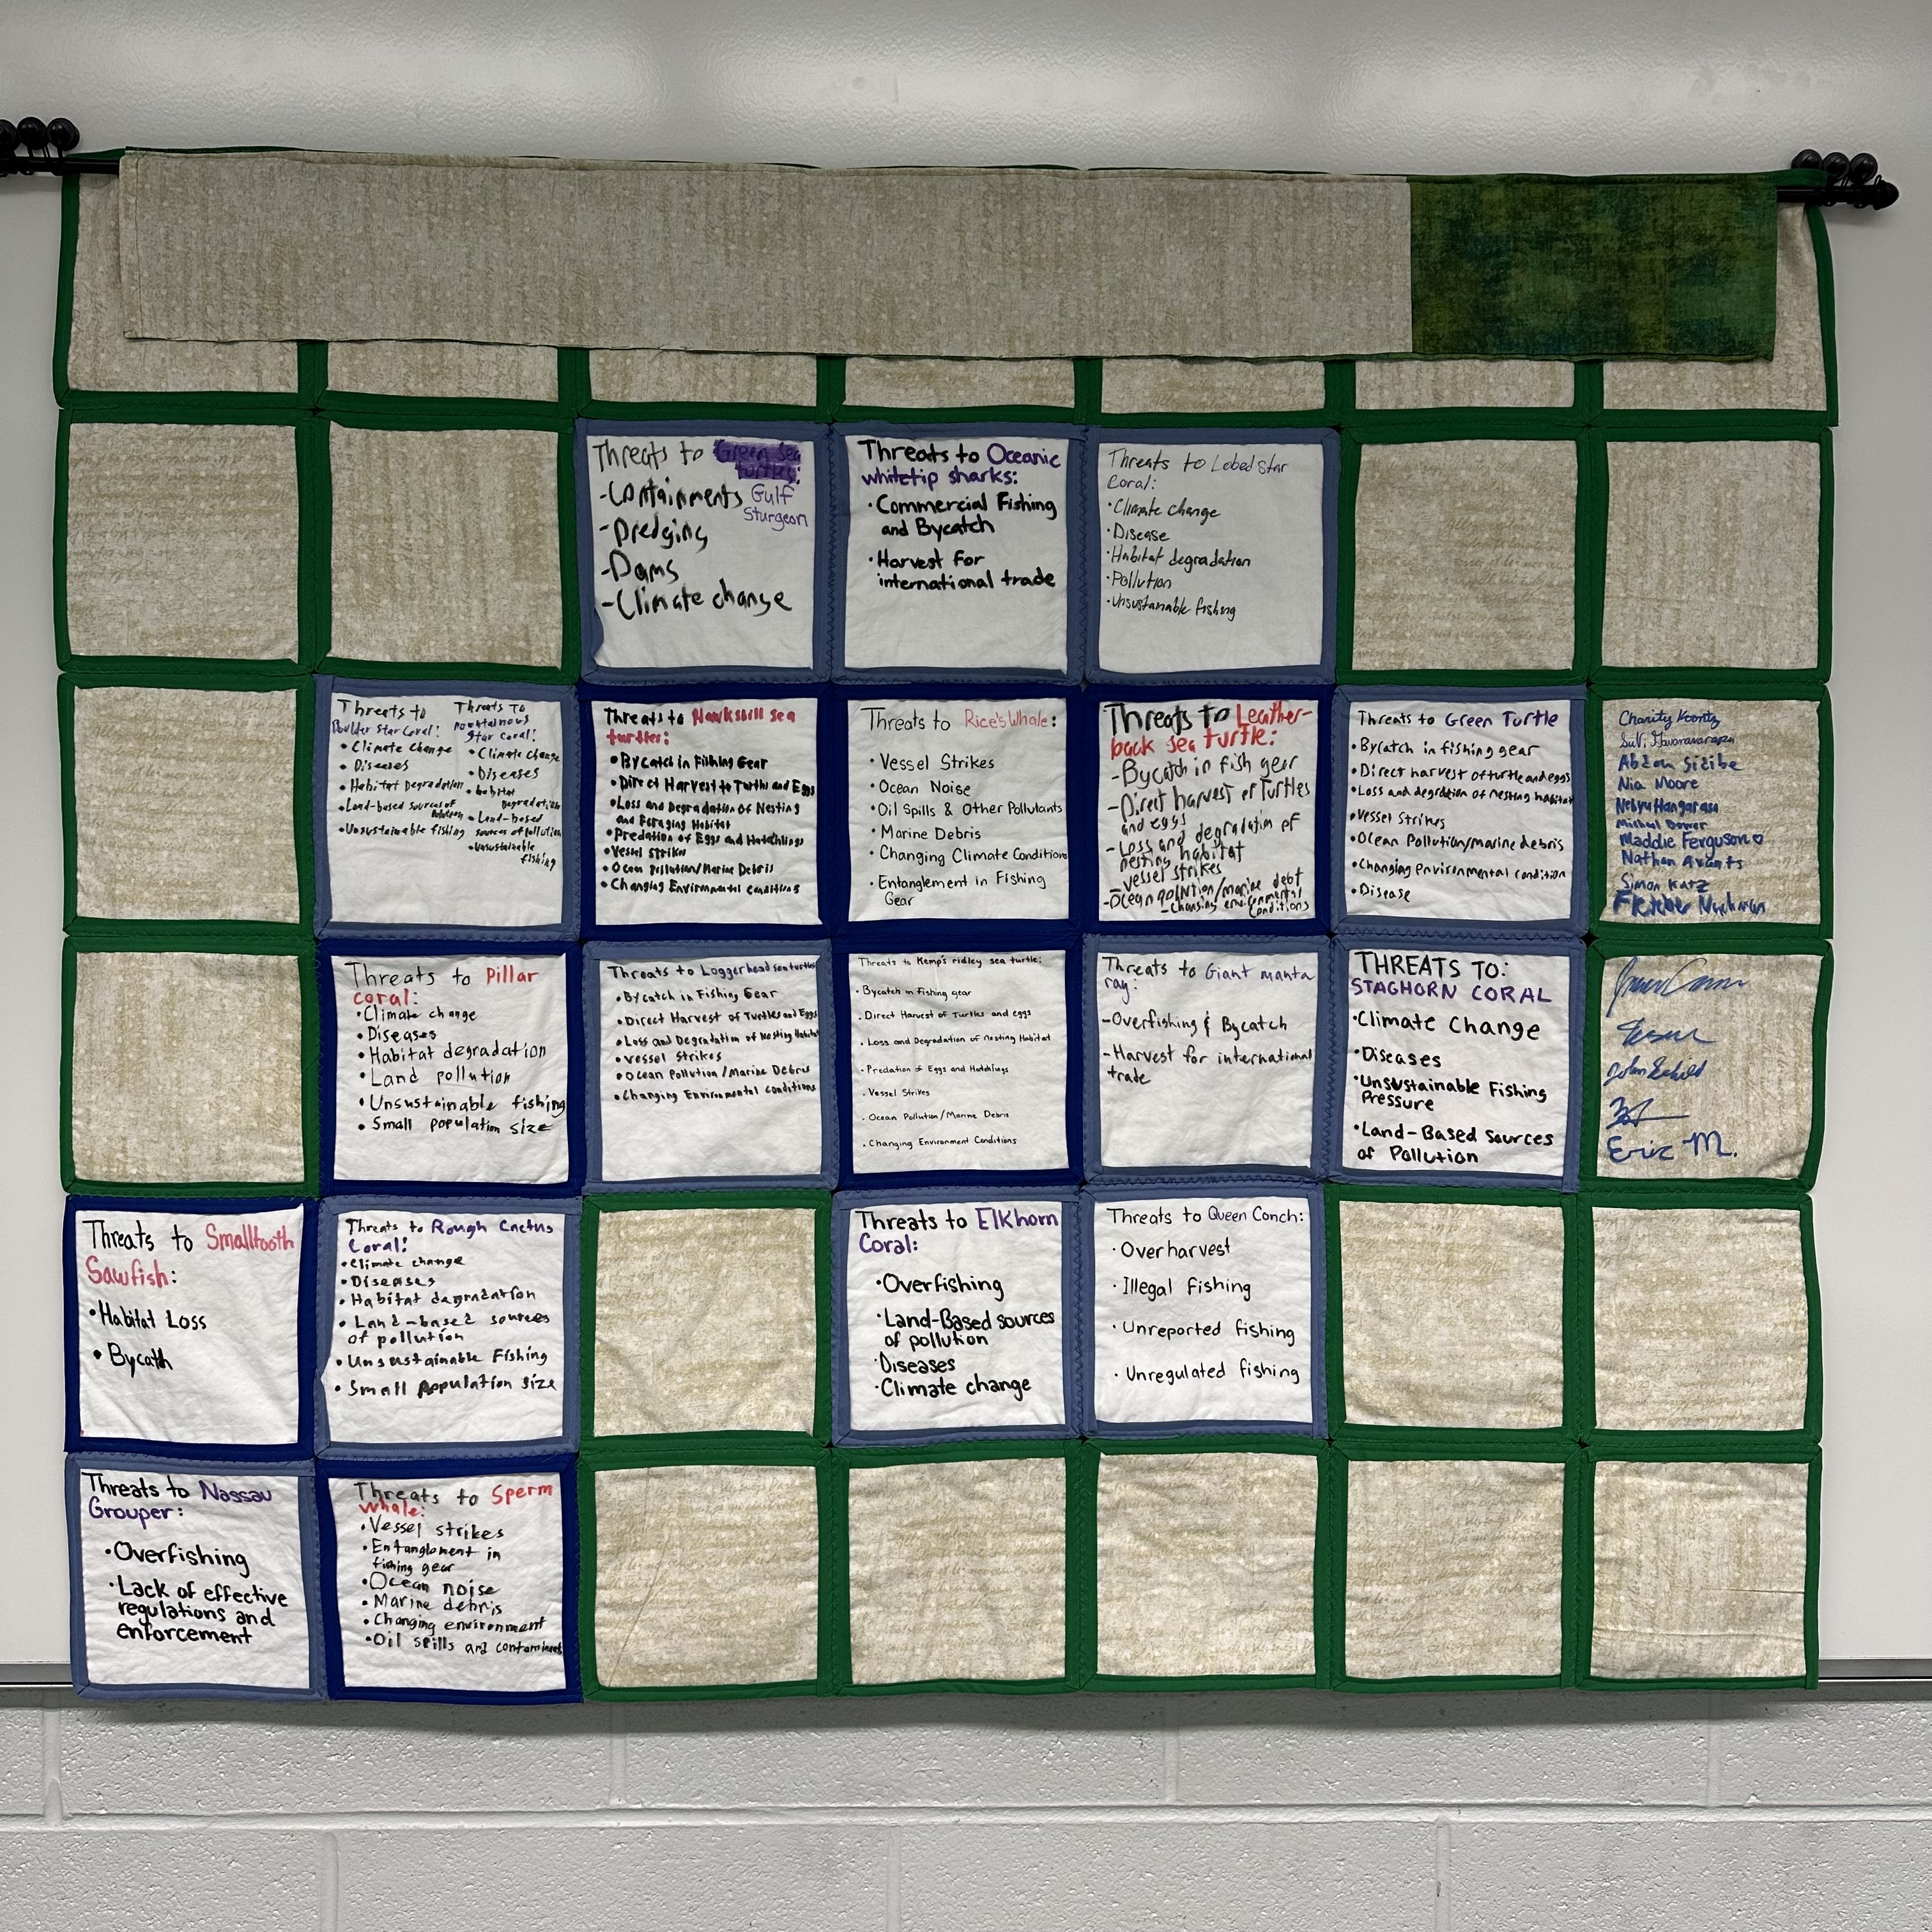 Threats to Green Sea
turtles:
Gulf
Sturgeon
-Containments
-Dredging
-Dams
-Climate change
Threats to Oceanic
whitetip sharks:
·Commercial Fishing
and Bycatch
·Harvest for
international trade
Threats to Lobed Star
Coral:
·Climate change
·Disease
·Habitat degradation
·Pollution
·Unsustainable fishing
Threats to
Boulder Star Coral:
• Climate Change
• Diseases
• Habitat Degradation
• Land-based sources of
pollution
• Unsustainable fishing
Threats To
Mountainous
Star Coral:
• Climate change
• Diseases
• habitat
Degradation
• Land-based
sources of pollution
• Unsustainable
fishing
Threats to Hawksbill sea
turtles:
• Bycatch in Fishing Gear
• Direct Harvest to Turtles and Eggs
• Loss and Degradation of Nesting
and Foraging Habitat
• Predation of Eggs and Hatchlings
• Vessel Strikes
• Ocean Pollution/Marine Debris
• Changing Enviromental conditions
Threats to Rice's Whale:
• Vessel Strikes
• Ocean Noise
• Oil Spills & Other Pollutants
• Marine Debris
• Changing Climate Conditions
• Entanglement in Fishing
Gear
Threats to Leather-
back sea turtle:
-Bycatch in fish gear
-Direct harvest of Turtles
and eggs
-Loss and degradation of
nesting habitat
-vessel strikes
-Ocean pollution/marine debt
-Changing environmental
conditions
Threats to Green Turtle
• Bycatch in fishing gear
• Direct harvest of turtle and eggs
• Loss and degration of nesting habitat
• Vessel Strikes
• Ocean Pollution/marine debris
• Changing Environmental condition
• Disease
Charity Koontz
Nia Moore
Maddie Ferguson♡
Simon Katz
Threats to Pillar
coral:
• Climate change
• Diseases
• Habitat degradation
• Land pollution
• Unsustainable fishing
• Small population size
Threats to Loggerhead sea turtles
• Bycatch in Fishing Gear
• Direct Harvest of Turtles and Eggs
• Loss and Degradation of Nesting Habitat
• vessel Strikes
• Ocean Pollution/Marine Debris
• Changing Environmental Conditions
Threats to Kemp's ridley sea turtle:
• Bycatch in Fishing gear
• Direct Harvest of Turtles and eggs
• Loss and Degradation of Nesting Habitat
• Predation of Eggs and Hatchlings
• Vessel Strikes
• Ocean Pollution/Marine Debris
• Changing Environment Conditions
Threats to Giant manta
ray:
-Overfishing & Bycatch
-Harvest for international
trade
THREATS TO:
STAGHORN CORAL
•Climate Change
•Diseases
•Unsustainable Fishing
Pressure
•Land-Based Sources
of Pollution
Eric M.
Threats to Smalltooth
Sawfish:
• Habitat Loss
• Bycath
Threats to Rough Cactus
Coral:
• Climate change
• Diseases
• Habitat degradation
• Land-based sources
of pollution
• Unsustainable Fishing
• Small Population size
Threats to Elkhorn
Coral:
·Overfishing
·Land-Based sources
of pollution
·Diseases
·Climate change
Threats to Queen Conch:
· Overharvest
· Illegal fishing
· Unreported fishing
· Unregulated fishing
Threats to Nassau
Grouper:
·Overfishing
·Lack of effective
regulations and
enforcement
Threats to Sperm
whale:
• Vessel strikes
• Entanglement in
fishing gear
• Ocean noise
• Marine debris
• Changing environment
• Oil spills and contaminents